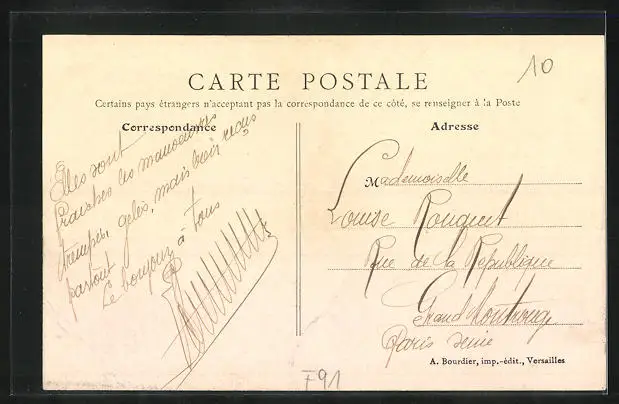 10
CARTE POSTALE
Certains pays étrangers n'acceptant pas la correspondance de ce côté, se renseigner à la Poste
Correspondance
Elles sont
fraiches les manoeuvres
trempés, gelés, mais bien reçus
partout
Le bonjour à tous
Adresse
Mademoiselle
Louise Rouquet
Rue de la République
Grand Montrouge
Paris Seine
A. Bourdier, imp.-édit., Versailles
F91